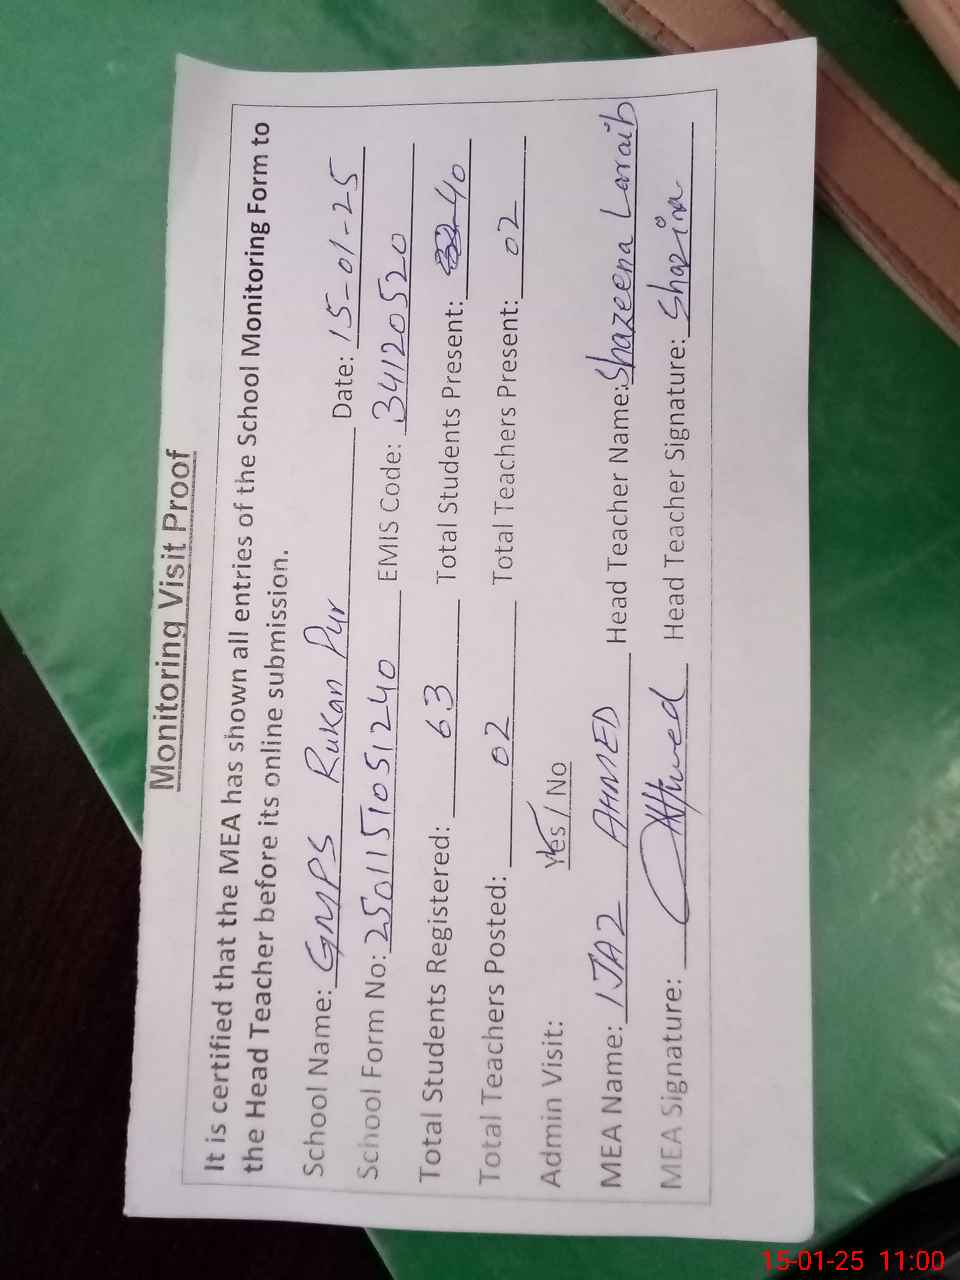 Monitoring Visit Proof
It is certified that the MEA has shown all entries of the School Monitoring Form to
the Head Teacher before its online submission.
School Name: GMPS Rukan Pur Date: 15-01-25
School Form No: 2501151051240 EMIS Code: 34120520
Total Students Registered: 63 Total Students Present: 40
Total Teachers Posted: 02 Total Teachers Present: 02
Admin Visit: Yes / No
MEA Name: IJAZ AHMED Head Teacher Name: Shazeena Laraib
MEA Signature: Ahmed Head Teacher Signature: Shazina
15-01-25 11:00